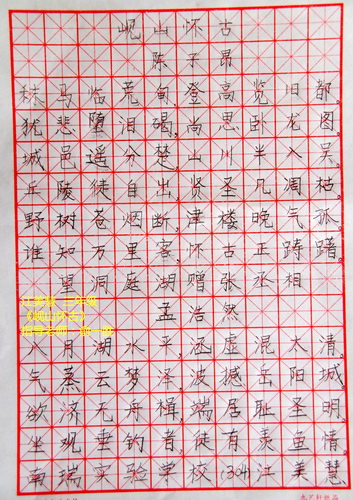 岘山怀古
陈子昂
秣马临荒甸,登高览旧都。
犹悲堕泪碣,尚思卧龙图。
城邑遥分楚,山川半入吴。
丘陵徒自出,贤圣几凋枯。
野树苍烟断,津楼晚气孤。
谁知万里客,怀古正踌躇。
望洞庭湖赠张丞相
孟浩然
江美慧 三年级
《岘山怀古》
指导老师
八月湖水平,涵虚混太清。
气蒸云梦泽,波撼岳阳城。
欲济无舟楫,端居耻圣明。
坐观垂钓者,徒有羡鱼情。
南瑞实验学校(304)江美慧